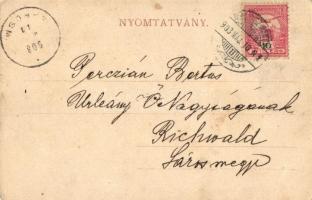 NYOMTATVÁNY.
Perczián Bertus
Urleány Ő Nagyságának
Richwald
Sáros megye